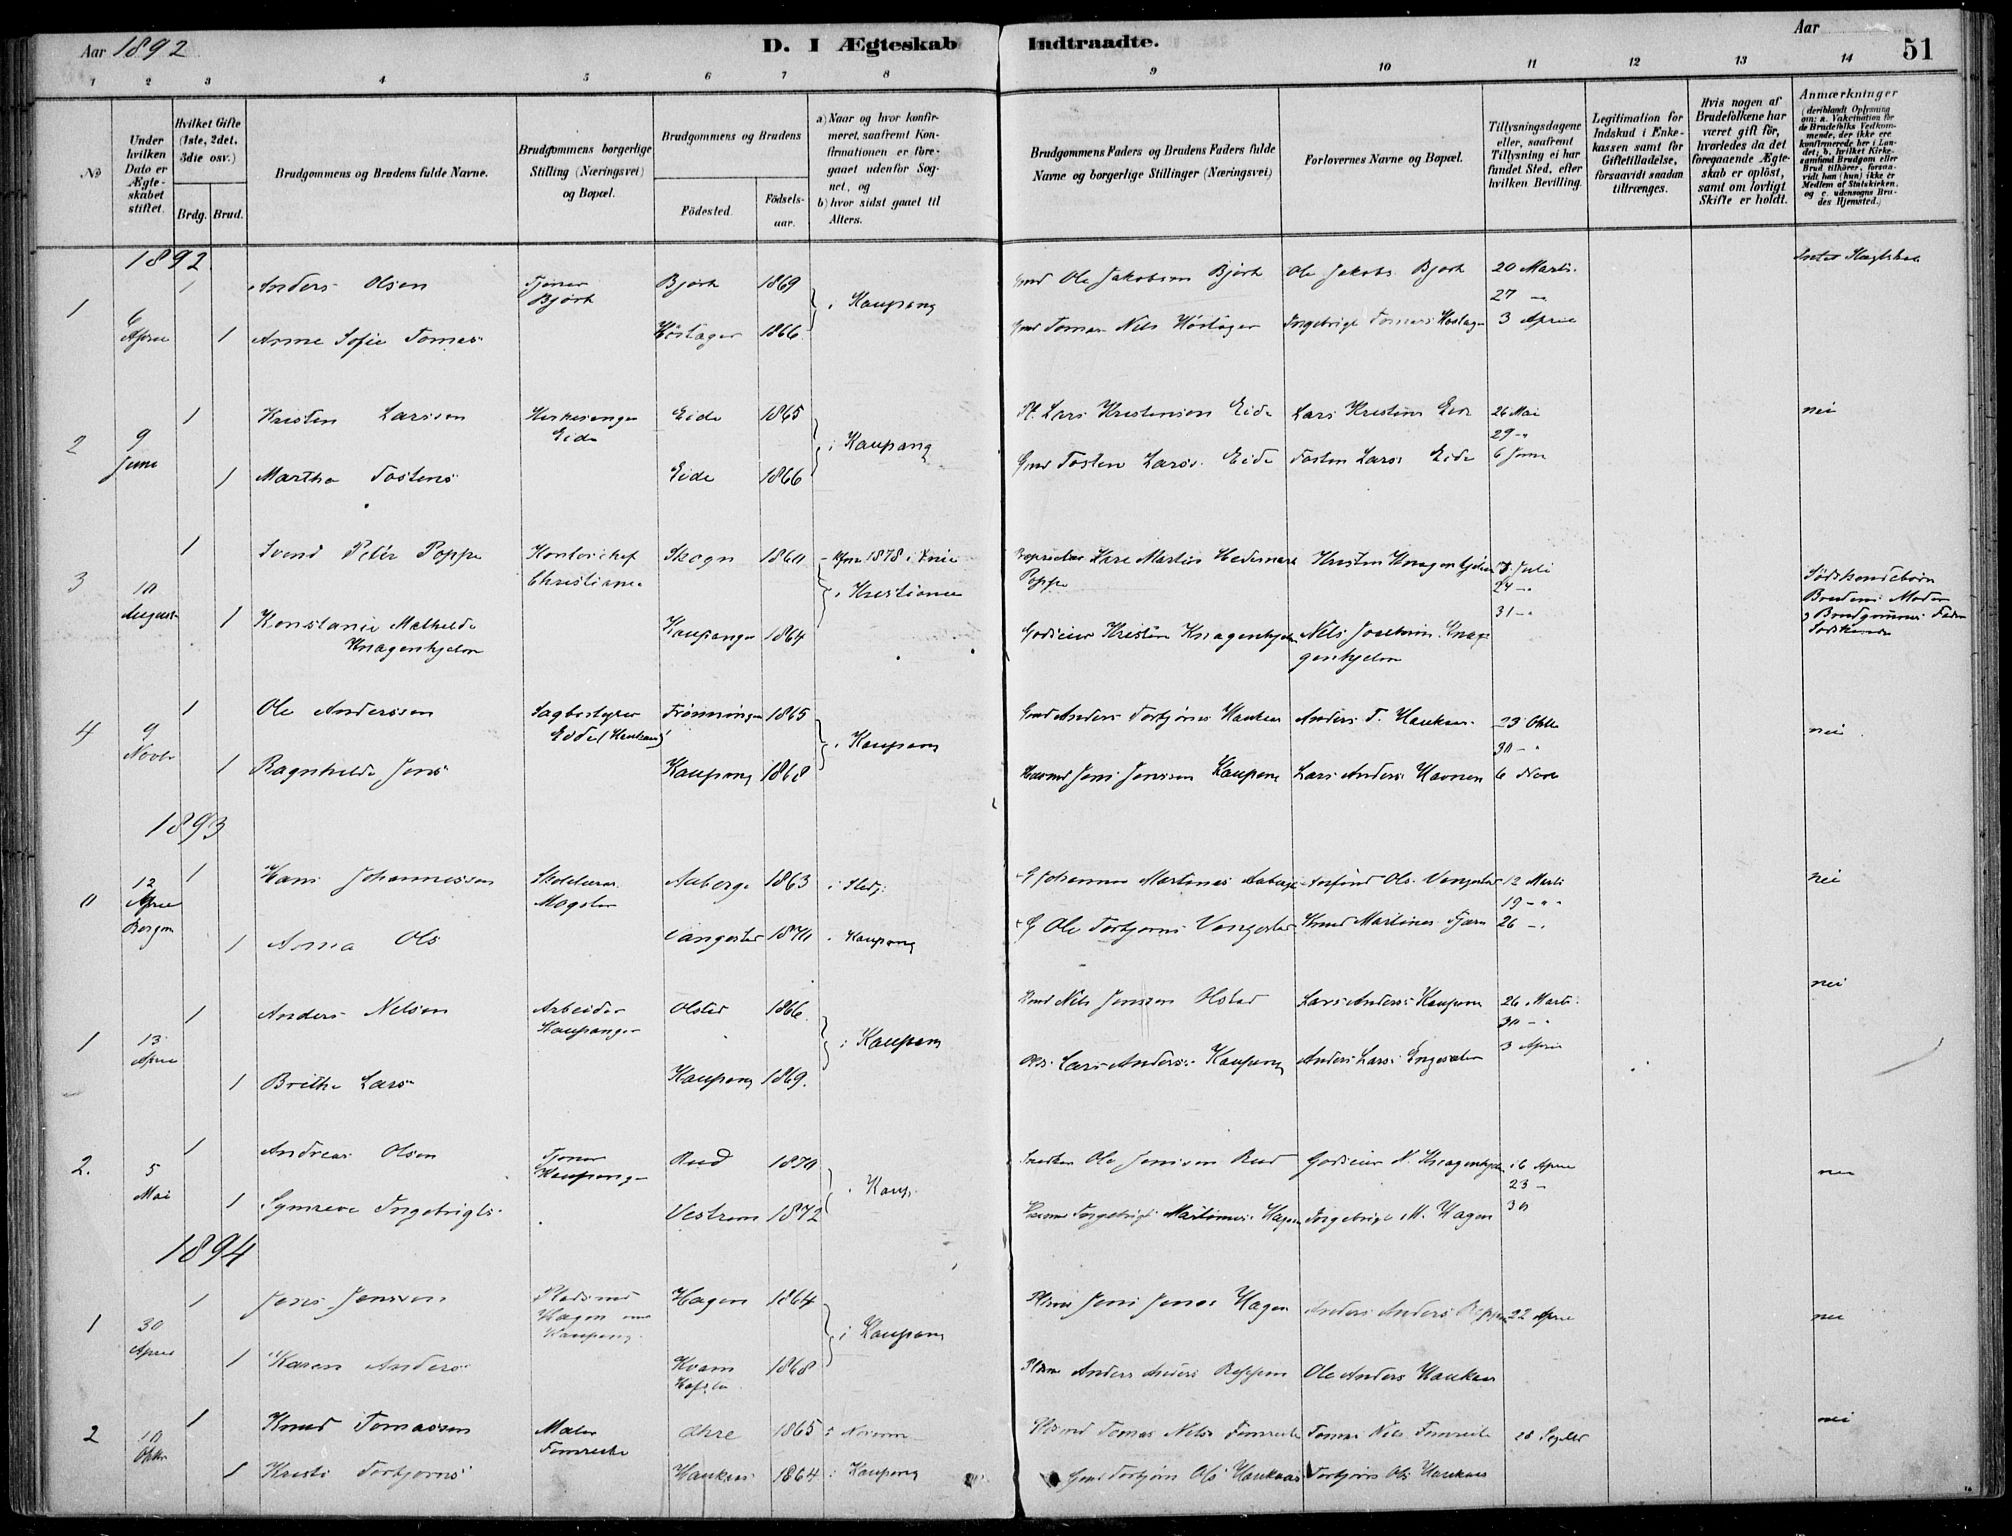 Aar 1892
D. I Ægteskab Indtraadte.
Aar
51
1 2 3 4 5 6 7 8 9 10 11 12 13 14
No
Under hvilken Dato er Ægteskabet stiftet.
Hvilket Gifte (1ste, 2det, 3die osv.)
Brdg. Brud.
Brudgommens og Brudens fulde Navne.
Brudgommens borgerlige Stilling (Næringsvei) og Bopæl.
Brudgommens og Brudens
Födested.
Födselsaar.
a) Naar og hvor konfirmeret, saafremt Konfirmationen er foregaaet udenfor Sognet, og
b) hvor sidst gaaet til Alters.
Brudgommens Faders og Brudens Faders fulde Navne og borgerlige Stillinger (Næringsvei)
Forlovernes Navne og Bopæl.
Tillysningsdagene eller, saafremt Tillysning ei har fundet Sted, efter hvilken Bevilling.
Legitimation for Indskud i Enkekassen samt for Giftetilladelse, forsaavidt saadan tiltrænges.
Hvis nogen af Brudefolkene har været gift för, hvorledes da det foregaaende Ægteskab er oplöst, samt om lovligt Skifte er holdt.
Anmærkninger
(deriblandt Oplysning om: a. Vakcination for de Brudefolks Vedkommende, der ikke ere konfirmerede her i Landet; b. hvilket Kirkesamfund Brudgom eller Brud tilhörer, forsaavidt han (hun) ikke er Medlem af Statskirken, og c. udensogns Brudes Hjemsted.)
1892
1 6 April 1 Anders Olsen Tjener Bjørk Bjørk 1869 i Kaupang Gmd Ole Jakobsen Bjørk Ole Jakobs Bjork 20 Marts
27 -"-
1 Anne Sofie Tomas Høstager 1866 Gmd Tomas Nils Høstager Ingebrigt Tomas 3 April
2 9 Juni 1 Kristen Larssen Eide Eide 1865 i Kaupang Pl. Lars Kristensen Eide Lars Kristens Eide 26 Mai nei
29 -"
1 Martha Tostens Eide 1866 Gmd Tosten Lars. Eide Tosten Lars. Eide 6 Juni
3 10 August 1 Svend Peter Poppe Kontorchef Christiania Skogn 1860 1878 i Kristiania Martin Hedemark Poppe Kristen Knagenhjelm Juli
24 -"
31 -"
1 Konstance Mathilde Knagenhjelm Kaupanger 1864 Godseier Kristen Knagenhjelm Nils Joachim Knagenhjelm
Sødskendebørn
Brudens Moder
og Brudgommens Fader
Sødskende
4 9 Novbr 1 Ole Anderssen Sagbestyrer Frønningen 1865 i Kaupang Gmd Anders Torbjørns Haukaas Anders T. Haukaas 23 Oktb nei
30 -"
1 Ragnhilde Jens Kaupang 1868 Jens Jenssen Kaupang Lars Anders Havnen 6 Nov
1893
0 12 April Bergen 1 Hans Johannessen Skolelærer Aaberge 1863 i Sted. G Johannes Martinus Aaberge Ols. Vangestad 12 Marts nei
19 -"
1 Anna Ols Vangestad 1870 i Kaupang G Ole Torbjørns Vangestad Knud Martinus 26 -"
1 13 April 1 Anders Nelsen Arbeider Kaupanger Olstad 1866 i Kaupang Nils Jenssen Olstad Lars Anders Kaupang 26 Marts nei
30 -"
1 Brithe Lars Kaupang 1869. Lars Anders. Kaupang Anders Lars. 3 April
2. 5 Mai 1 Andreas Olsen Tjener Kaupang Rud 1870 i Kaup. Snedker Ole Jenssen Rud Godseier N. Knagenhjelm 16 April nei
23 -
1 Synneve Ingebrigts Vestrem 1872 Ingebrigt Martinus Hagen Ingebrigt M. Hagen 30
1894
1 30 April 1 Jens Jenssen Pladsmd Hagen Kaupang Hagen 1864 i Kaupang Plsmd Jens Jenssen Hagen Anders Anders 22 April nei
1 Karen Anders Kvam Hafslo 1868 Plsmd Anders Anders Ole Anders Haukaas
2 10 Oktbr 1 Knud Tomassen Maler Fimreite 1865 i Norum Plsmd Tomas Nils Fimreite Tomas Nils Fimreite 28 Septbr nei
1 Kristi Torbjørns Haukaas 1864 i Kaupang Gmd Torbjørn Ols Haukaas Torbjørn Ols Haukaas